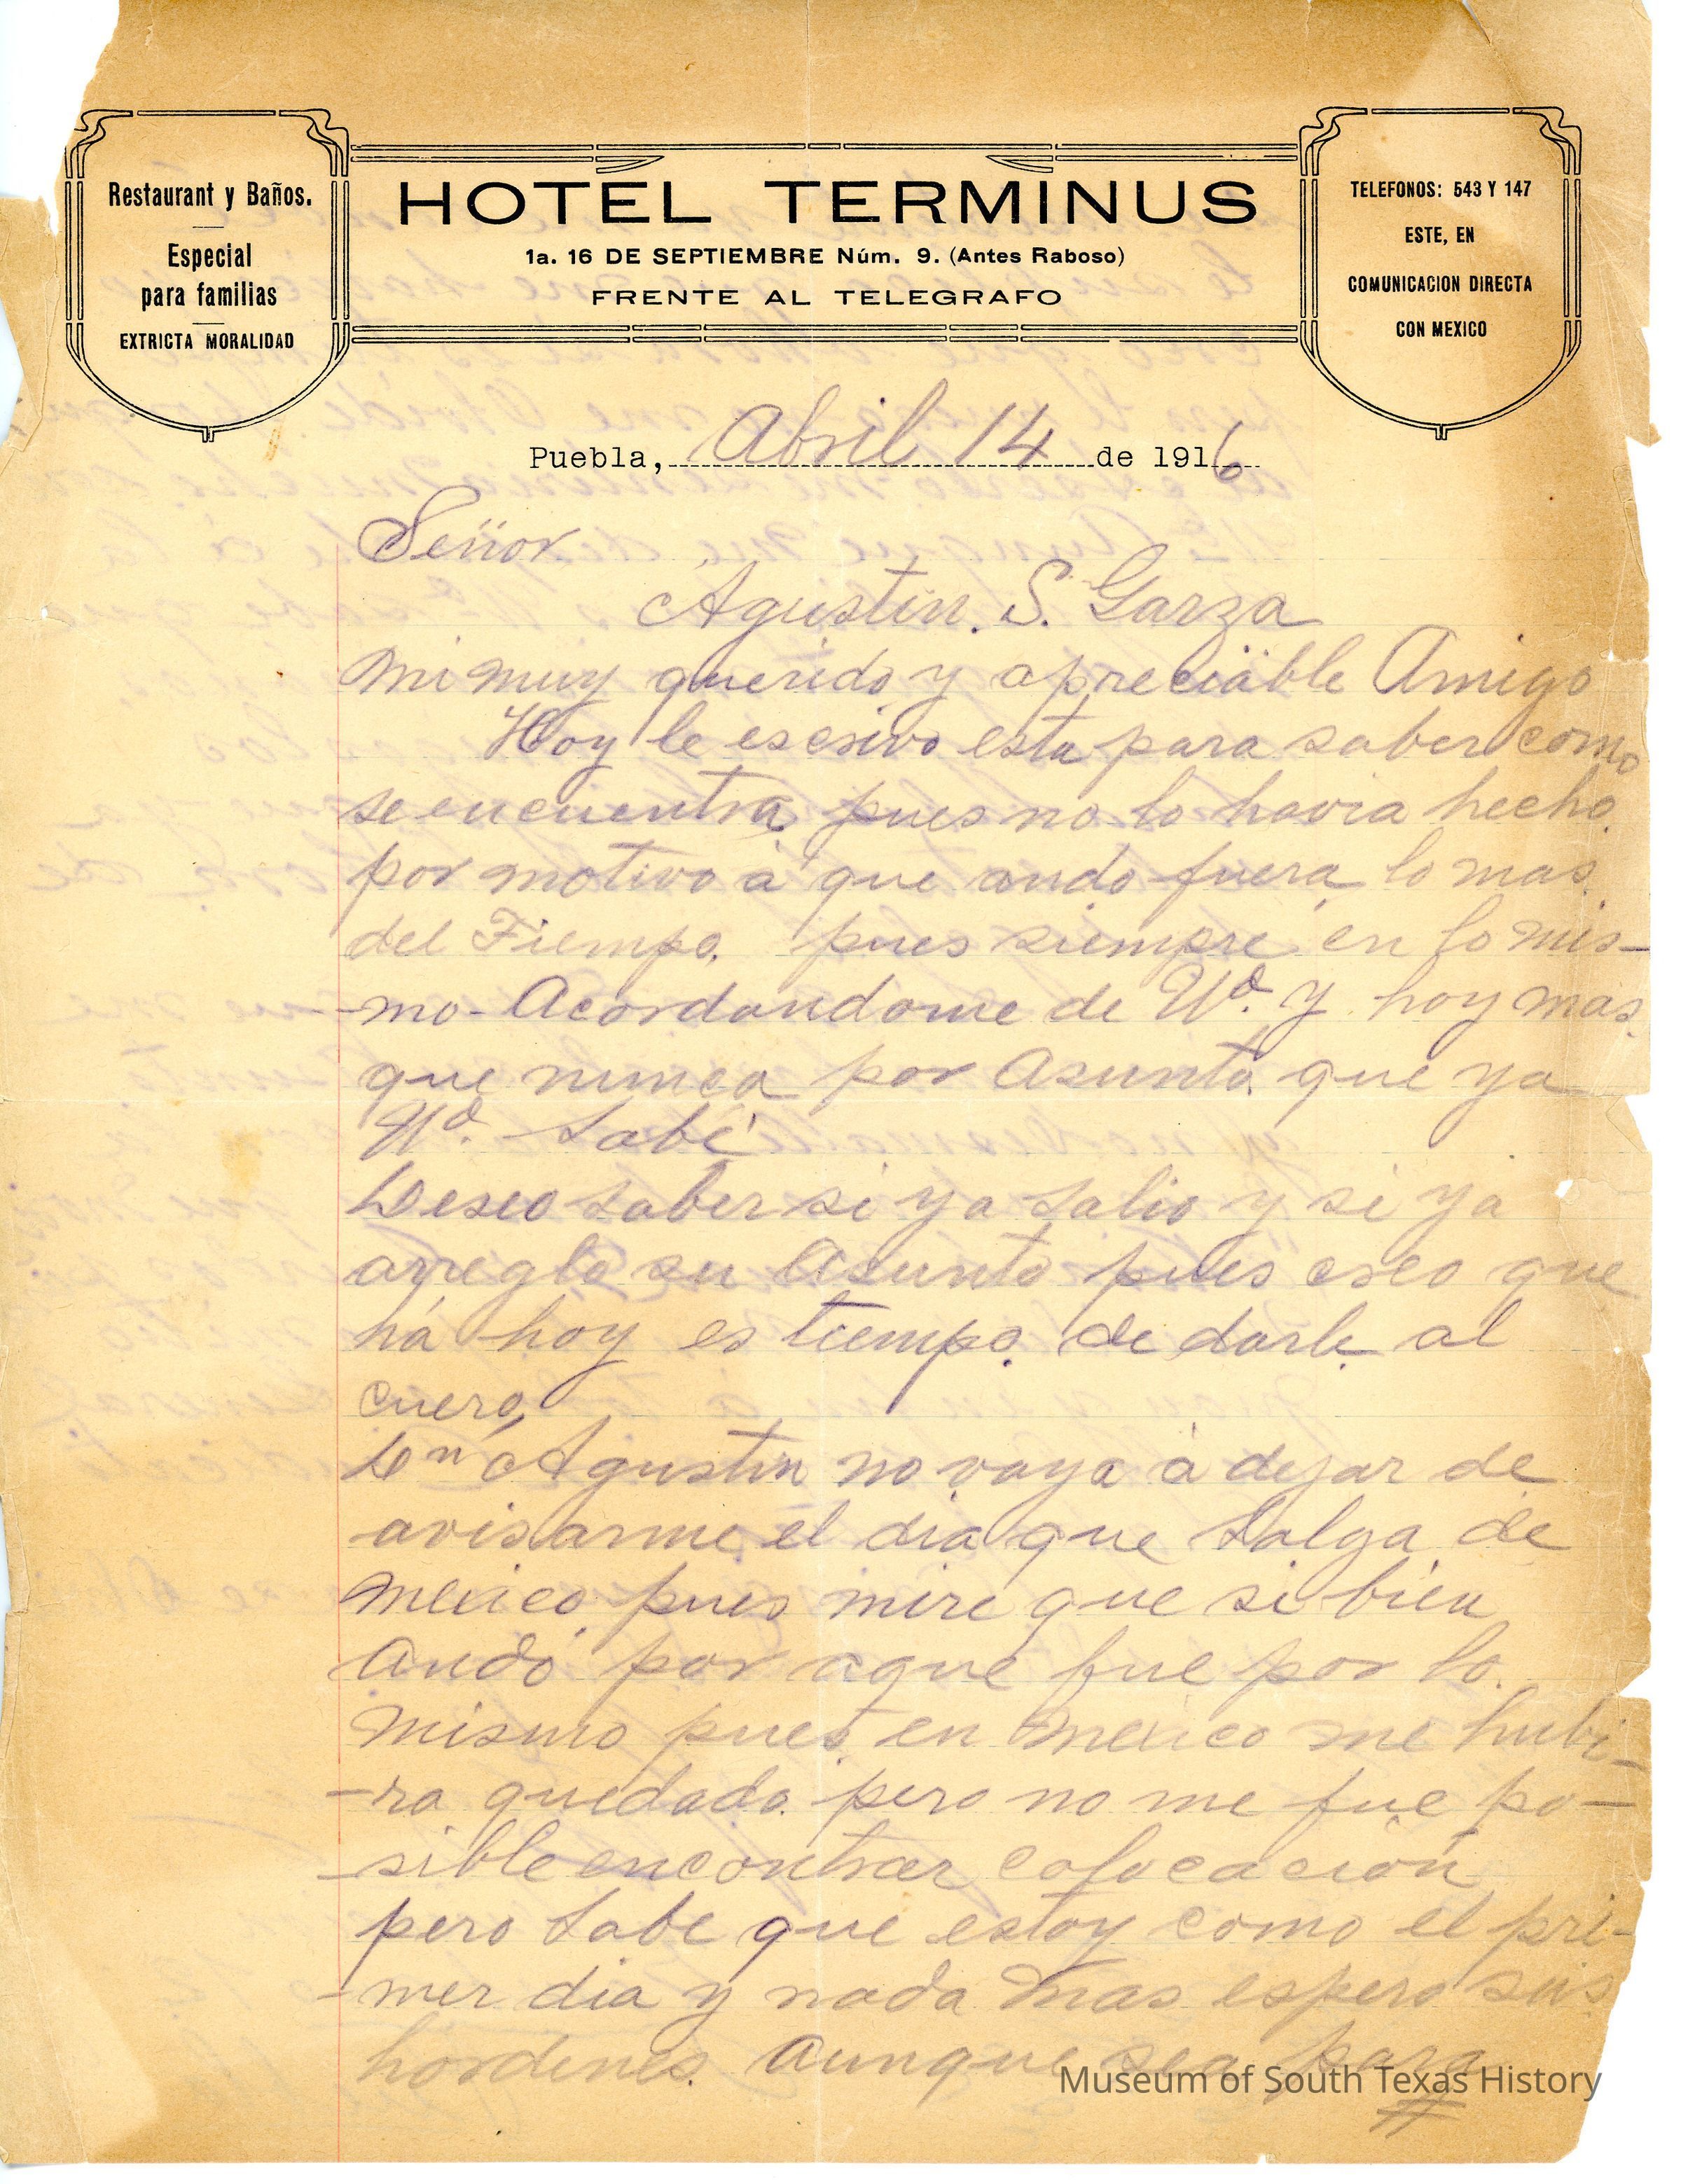 Restaurant y Baños.
Especial
para familias
EXTRICTA MORALIDAD
HOTEL TERMINUS
1a. 16 DE SEPTIEMBRE Núm. 9. (Antes Raboso)
FRENTE AL TELEGRAFO
TELEFONOS: 543 Y 147
ESTE, EN
COMUNICACION DIRECTA
CON MEXICO
Puebla, Abril 14 de 1916
Señor
Agustin. S. Garza
Mi muy querido y apreciable Amigo
Hoy le escrivo esta para saber como
se encuentra pues no lo havia hecho
por motivo á que ando fuera lo mas
del Tiempo. pues siempre en lo mis-
-mo- Acordandome de Ud. y hoy mas
que nunca por Asunto que ya
Ud. Sabe
Deseo saber si ya salio y si ya
arreglo su Asunto pues creo que
há hoy es tiempo de darle al
cuero,
Dn Agustin no vaya á dejar de
avisarme el dia que Salga de
Mexico pues mire que si bien
Ando por aque fue por lo
Mismo pues en Mexico me hubi-
-ra quedado pero no me fue po-
-sible encontrar colocación
pero Sabe que estoy como el pri-
-mer dia y nada mas espero sus
hordenes. Aunque sea para
Museum of South Texas History